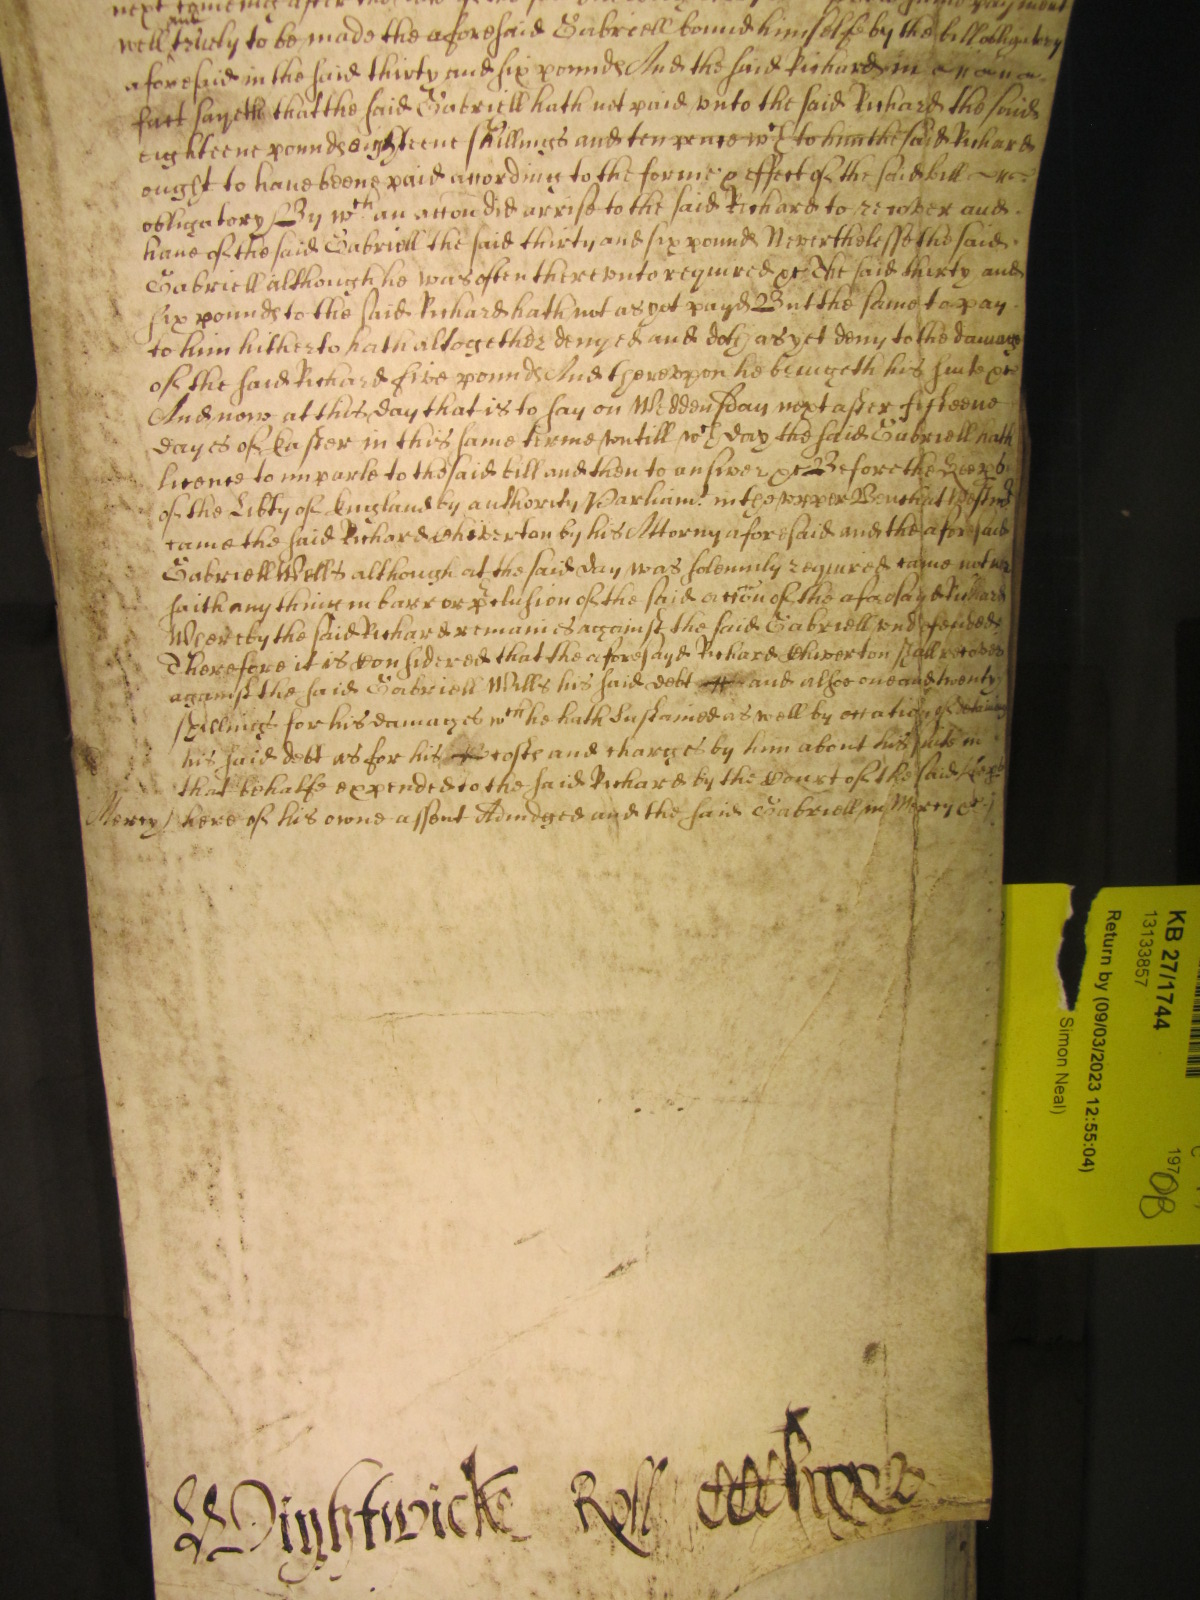 well and truely to be made the aforesaid Gabriell bound himselfe by the bill obligatory
aforesaid in the said thirty and six pounds And the said Richard in
fact sayeth that the said Gabriell hath not paid unto the said Richard the said
eighteene pounds eighteene shillings and ten pence wch to him the said Richard
ought to have beene paid according to the forme & effect of the said bill
obligatory By wch an accon did arrise to the said Richard to recover and
have of the said Gabriell the said thirty and six pounds Neverthelesse the said
Gabriell although he was often thereunto required &c The said thirty and
six pounds to the said Richard hath not as yet payd But the same to pay
to him hitherto hath altogether denyed and doth as yet deny to the damage
of the said Richard five pounds And thereupon he bringeth his suite &c
And now at this day that is to say on Weddensday next after fifteene
dayes of Easter in this same terme untill wch day the said Gabriell hath
licence to imparle to the said bill and then to answer &c Before the Keeprs
of the Libty of England by authority Parliamt in the upper Bench at Westmr
came the said Richard Chiverton by his Attorny aforesaid and the aforesaid
Gabriell Wells although at the said day was solemnly required came not nor
saith any thing in barr or pclusion of the said accon of the aforesayd Richard
Whereby the said Richard remaines against the said Gabriell undefended
Therefore it is considered that the aforesayd Richard Chiverton shall recover
against the said Gabriell Wells his said debt and alsoe one and twenty
shillings for his damages wch he hath sustained as well by occation of detaining
his said debt as for his costs and charges by him about his suite in
that behalfe expended to the said Richard by the Court of the said Keeprs
Mercy) here of his owne assent Adiudged and the said Gabriell in Mercy &c
Wightwick Roll
KB 27/1744
13133857
Return by (09/03/2023 12:55:04)
Simon Neal)
197